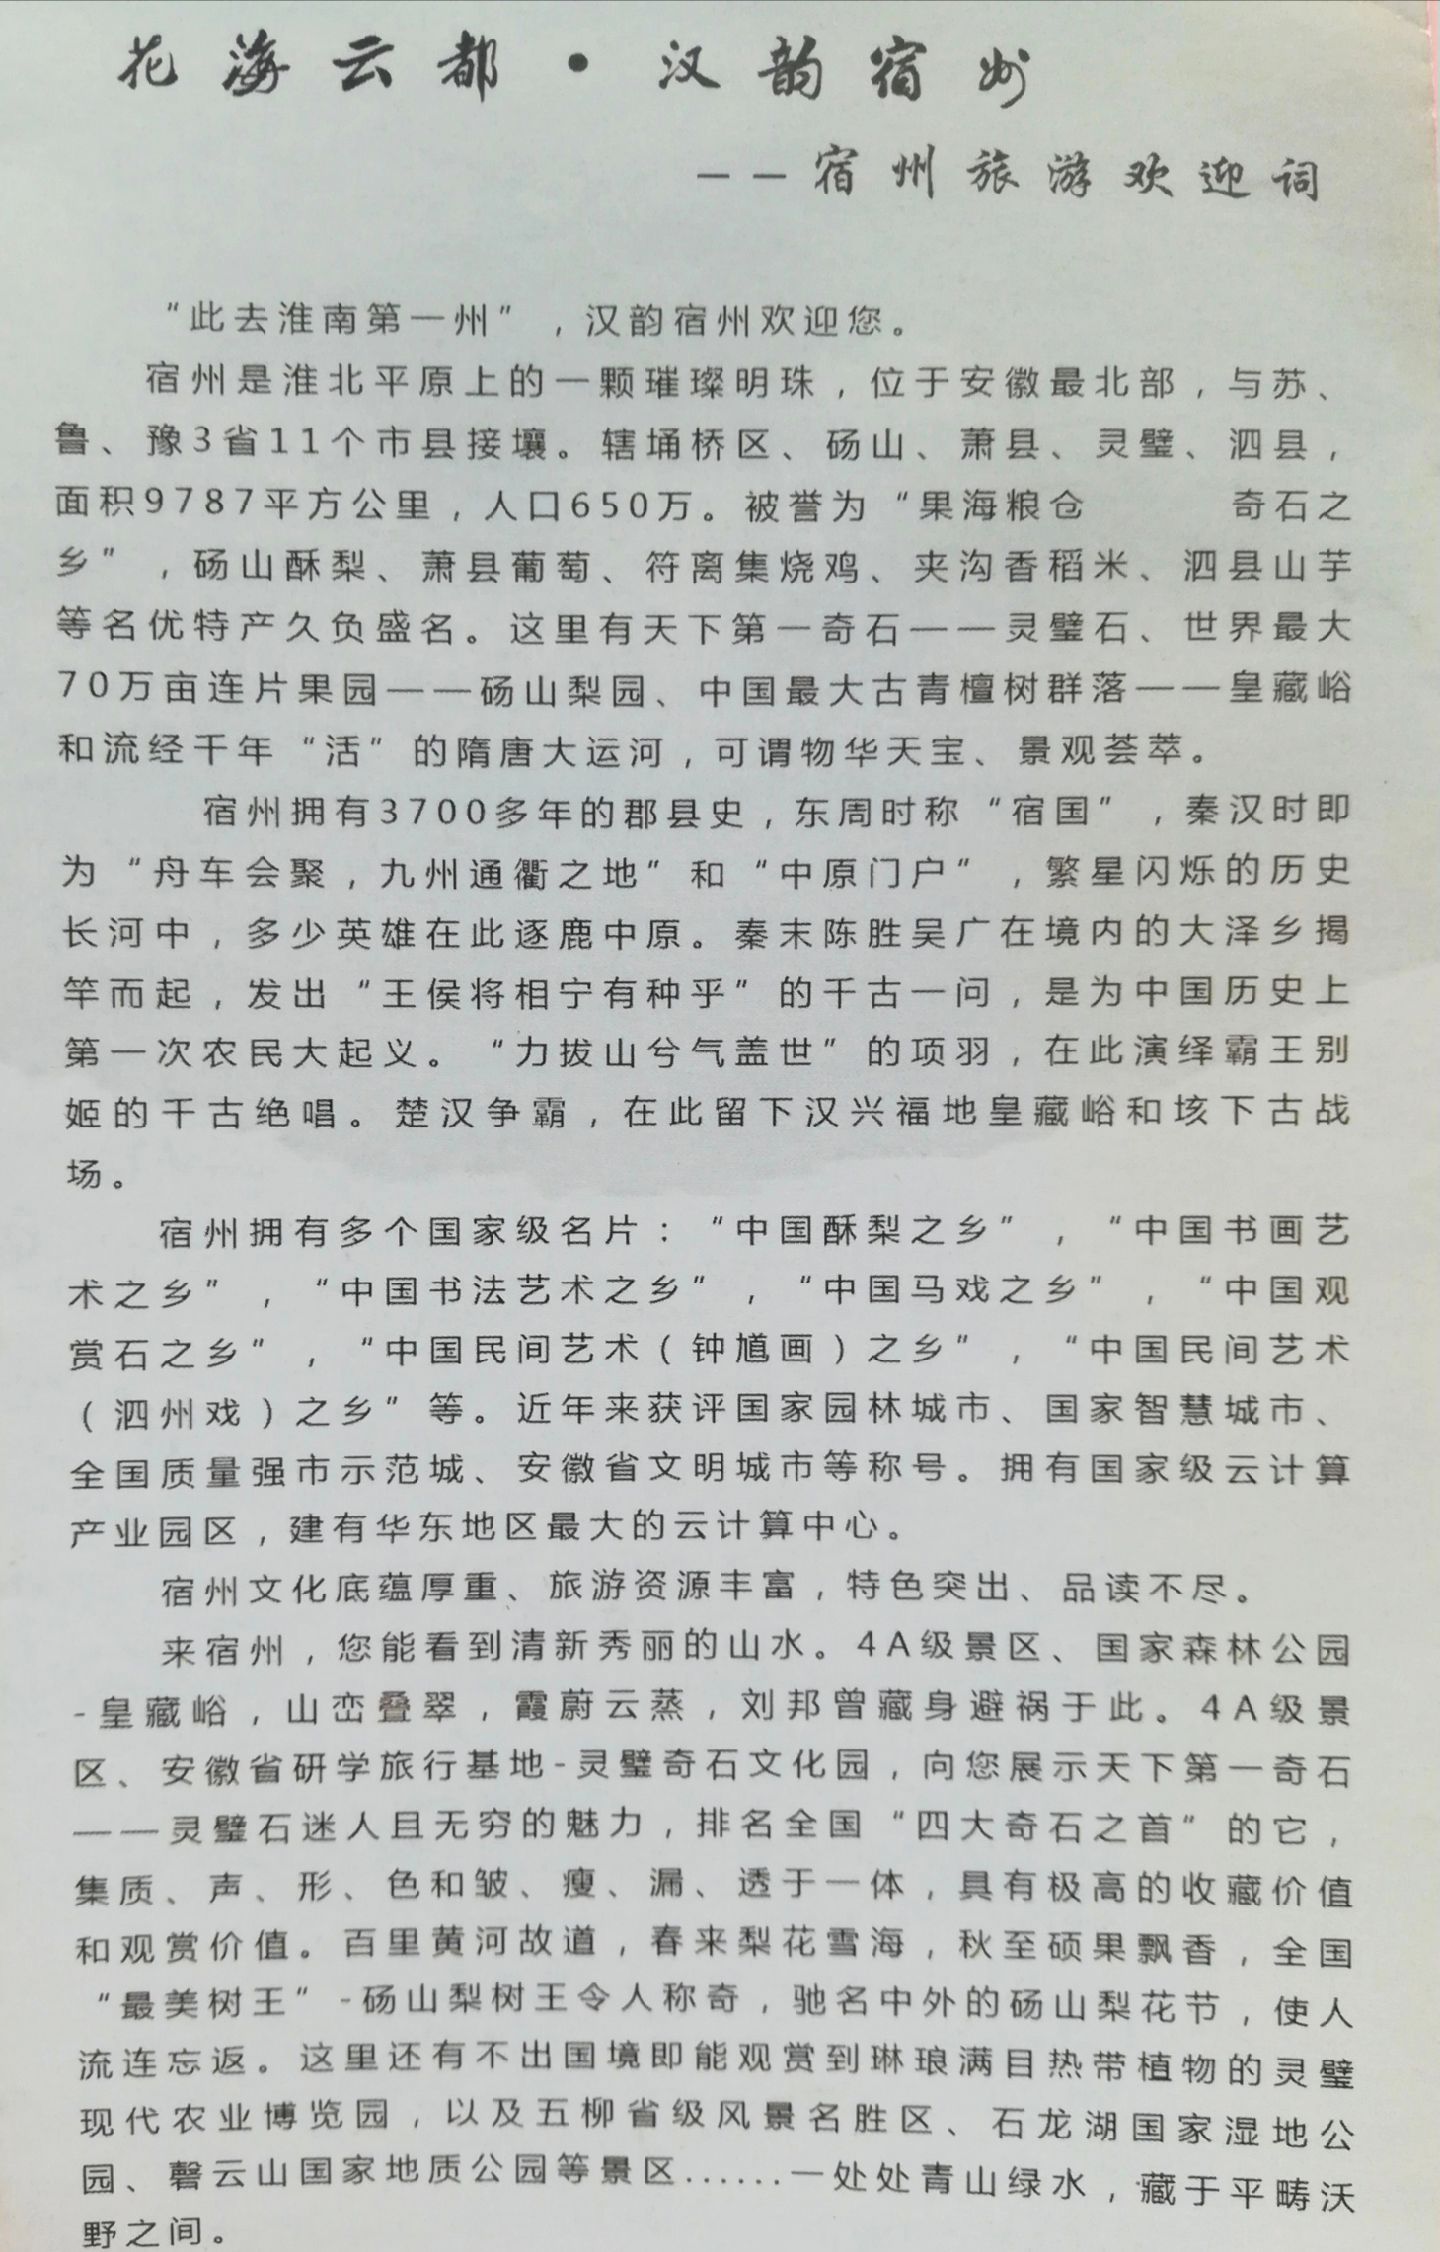 花海云都·汉韵宿州
——宿州旅游欢迎词
“此去淮南第一州”，汉韵宿州欢迎您。
宿州是淮北平原上的一颗璀璨明珠，位于安徽最北部，与苏、
鲁、豫3省11个市县接壤。辖埇桥区、砀山、萧县、灵璧、泗县，
面积9787平方公里，人口650万。被誉为“果海粮仓 奇石之
乡”，砀山酥梨、萧县葡萄、符离集烧鸡、夹沟香稻米、泗县山芋
等名优特产久负盛名。这里有天下第一奇石——灵璧石、世界最大
70万亩连片果园——砀山梨园、中国最大古青檀树群落——皇藏峪
和流经千年“活”的隋唐大运河，可谓物华天宝、景观荟萃。
宿州拥有3700多年的郡县史，东周时称“宿国”，秦汉时即
为“舟车会聚，九州通衢之地”和“中原门户”，繁星闪烁的历史
长河中，多少英雄在此逐鹿中原。秦末陈胜吴广在境内的大泽乡揭
竿而起，发出“王侯将相宁有种乎”的千古一问，是为中国历史上
第一次农民大起义。“力拔山兮气盖世”的项羽，在此演绎霸王别
姬的千古绝唱。楚汉争霸，在此留下汉兴福地皇藏峪和垓下古战
场。
宿州拥有多个国家级名片：“中国酥梨之乡”，“中国书画艺
术之乡”，“中国书法艺术之乡”，“中国马戏之乡”，“中国观
赏石之乡”，“中国民间艺术（钟馗画）之乡”，“中国民间艺术
（泗州戏）之乡”等。近年来获评国家园林城市、国家智慧城市、
全国质量强市示范城、安徽省文明城市等称号。拥有国家级云计算
产业园区，建有华东地区最大的云计算中心。
宿州文化底蕴厚重、旅游资源丰富，特色突出、品读不尽。
来宿州，您能看到清新秀丽的山水。4A级景区、国家森林公园
-皇藏峪，山峦叠翠，霞蔚云蒸，刘邦曾藏身避祸于此。4A级景
区、安徽省研学旅行基地-灵璧奇石文化园，向您展示天下第一奇石
——灵璧石迷人且无穷的魅力，排名全国“四大奇石之首”的它，
集质、声、形、色和皱、瘦、漏、透于一体，具有极高的收藏价值
和观赏价值。百里黄河故道，春来梨花雪海，秋至硕果飘香，全国
“最美树王”-砀山梨树王令人称奇，驰名中外的砀山梨花节，使人
流连忘返。这里还有不出国境即能观赏到琳琅满目热带植物的灵璧
现代农业博览园，以及五柳省级风景名胜区、石龙湖国家湿地公
园、磬云山国家地质公园等景区......一处处青山绿水，藏于平畴沃
野之间。